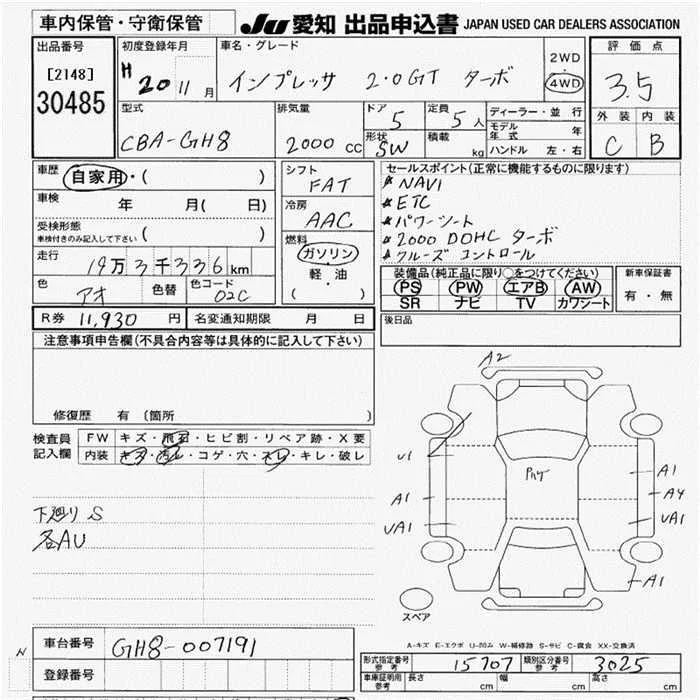 車内保管・守衛保管
JU 愛知 出品申込書 JAPAN USED CAR DEALERS ASSOCIATION
出品番号
[2148]
30485
初度登録年月
H 20 11 月
車名・グレード
インプレッサ 2.0GT ターボ
2WD
・
4WD
評価点
3.5
外装 内装
C B
型式
CBA-GH8
排気量
2000 CC
ドア
5
定員
5 人
形状
SW
積載
kg
ディーラー・並行
モデル年式 年
ハンドル 左・右
車歴
自家用・( )
車検
年 月( 日)
受検形態
車検付きのみ記入して下さい ( )
走行
19万3千336km
色
アオ
色替
色コード
02C
シフト
FAT
冷房
AAC
燃料
ガソリン
軽・油
( )
セールスポイント(正常に機能するものに限ります)
NAVI
ETC
パワーシート
2000 DOHC ターボ
クルーズ コントロール
装備品(純正品に限り○をつけてください)
PS PW エアB AW
SR ナビ TV カワシート
新車保証書
有・無
R券 11,930 円
名変通知期限 月 日
後日品
注意事項申告欄(不具合内容等は具体的に記入して下さい)
修復歴 有 (箇所 )
検査員
記入欄
FW キズ・飛石・ヒビ割・リペア跡・X要
内装 キズ・汚レ・コゲ・穴・スレ・キレ・破レ
下廻り S
各AU
A2
U1
A1
UA1
A1
A4
UA1
A1
スペア
A-キズ E-エクボ U-凹み W-補修跡 S-サビ C-腐食 XX-交換済
N
車台番号 GH8-007191
登録番号
形式指定番号 参考 15707
類別区分番号 参考 3025
車庫証明用 参考 長さ cm 幅 cm 高さ cm